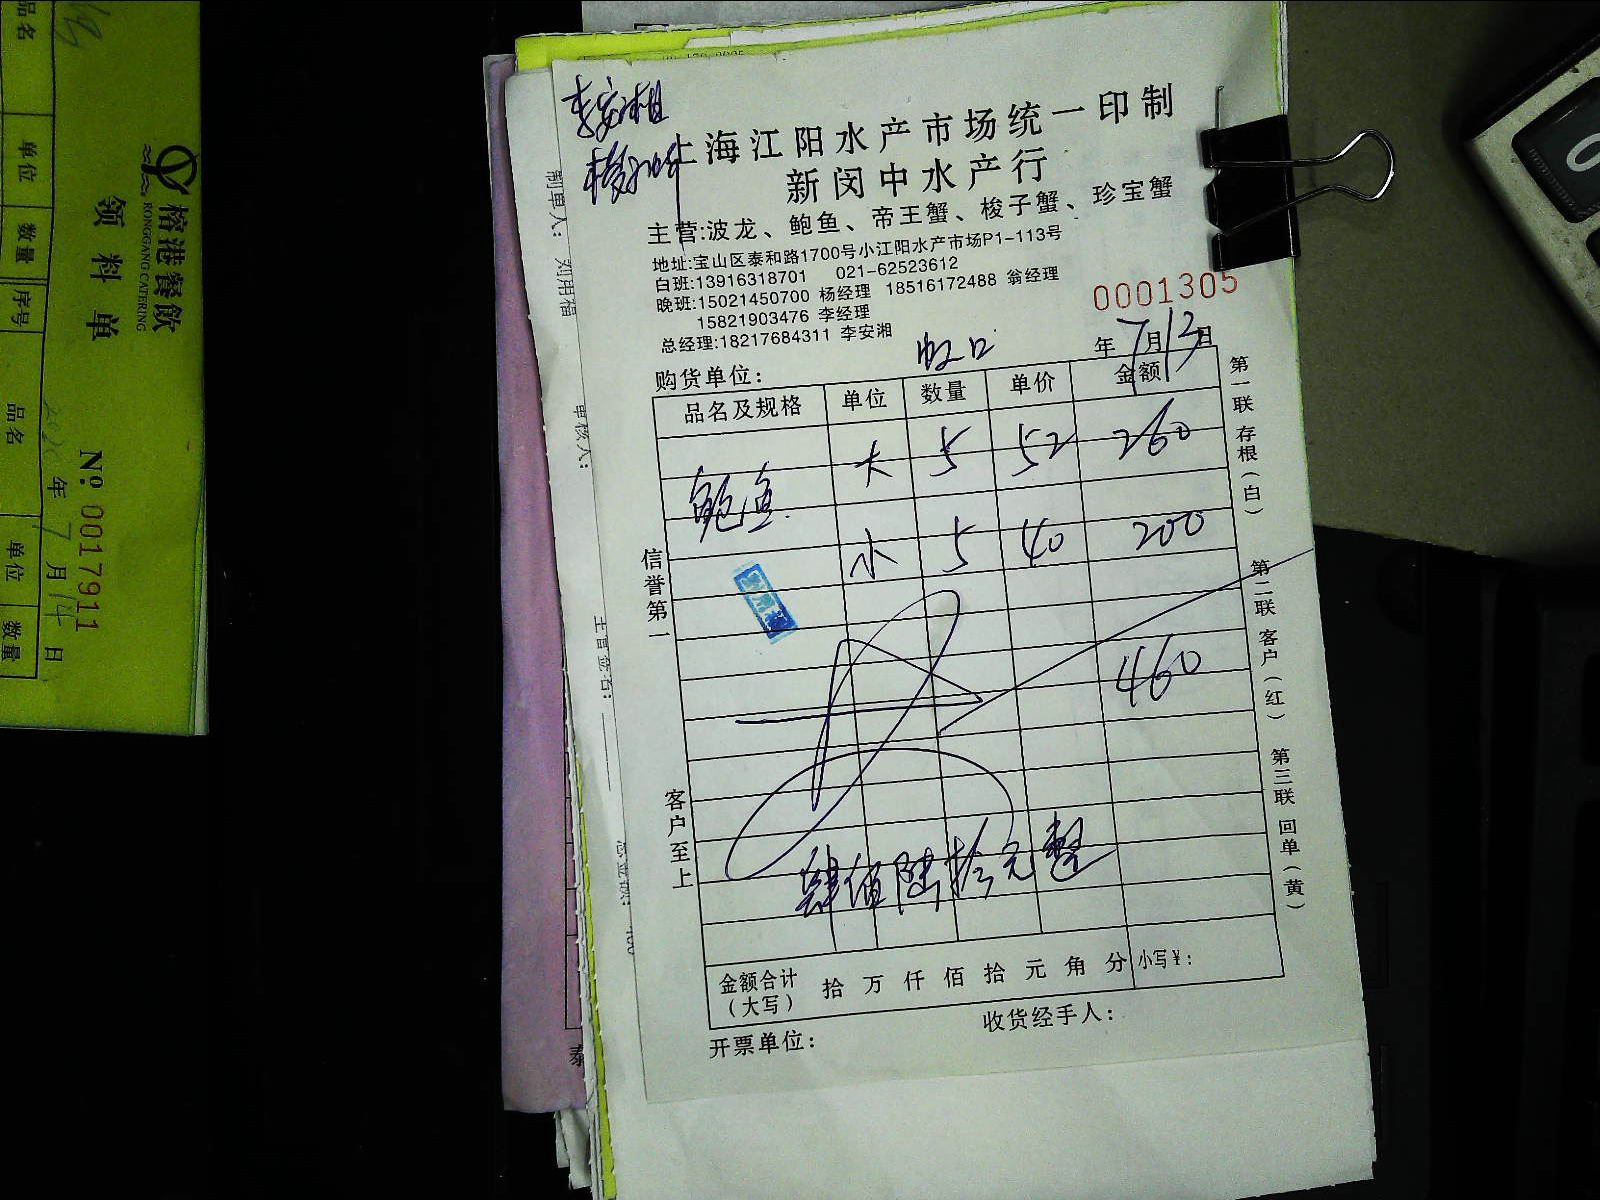 李安湘
上海江阳水产市场统一印制
新闵中水产行
主营:波龙、鲍鱼、帝王蟹、梭子蟹、珍宝蟹
地址:宝山区泰和路1700号小江阳水产市场P1-113号
白班:13916318701 021-62523612
晚班:15021450700 杨经理 18516172488 翁经理
15821903476 李经理
总经理:18217684311 李安湘
0001305
虹口
购货单位: 年7月13日
品名及规格 单位 数量 单价 金额
大 5 52 260
鲍鱼
小 5 40 200
460
肆佰陆拾元整
金额合计(大写) 拾 万 仟 佰 拾 元 角 分 小写¥:
开票单位: 收货经手人:
信誉第一
客户至上
第一联 存根(白)
第二联 客户(红)
第三联 回单(黄)
制单人: 刘用福
审核人:
榕港餐飲
RONGGANG CATERING
领料单
Nº 0017911
年7月14日
品名 单位 数量 序号 品名 单位 数量
泰